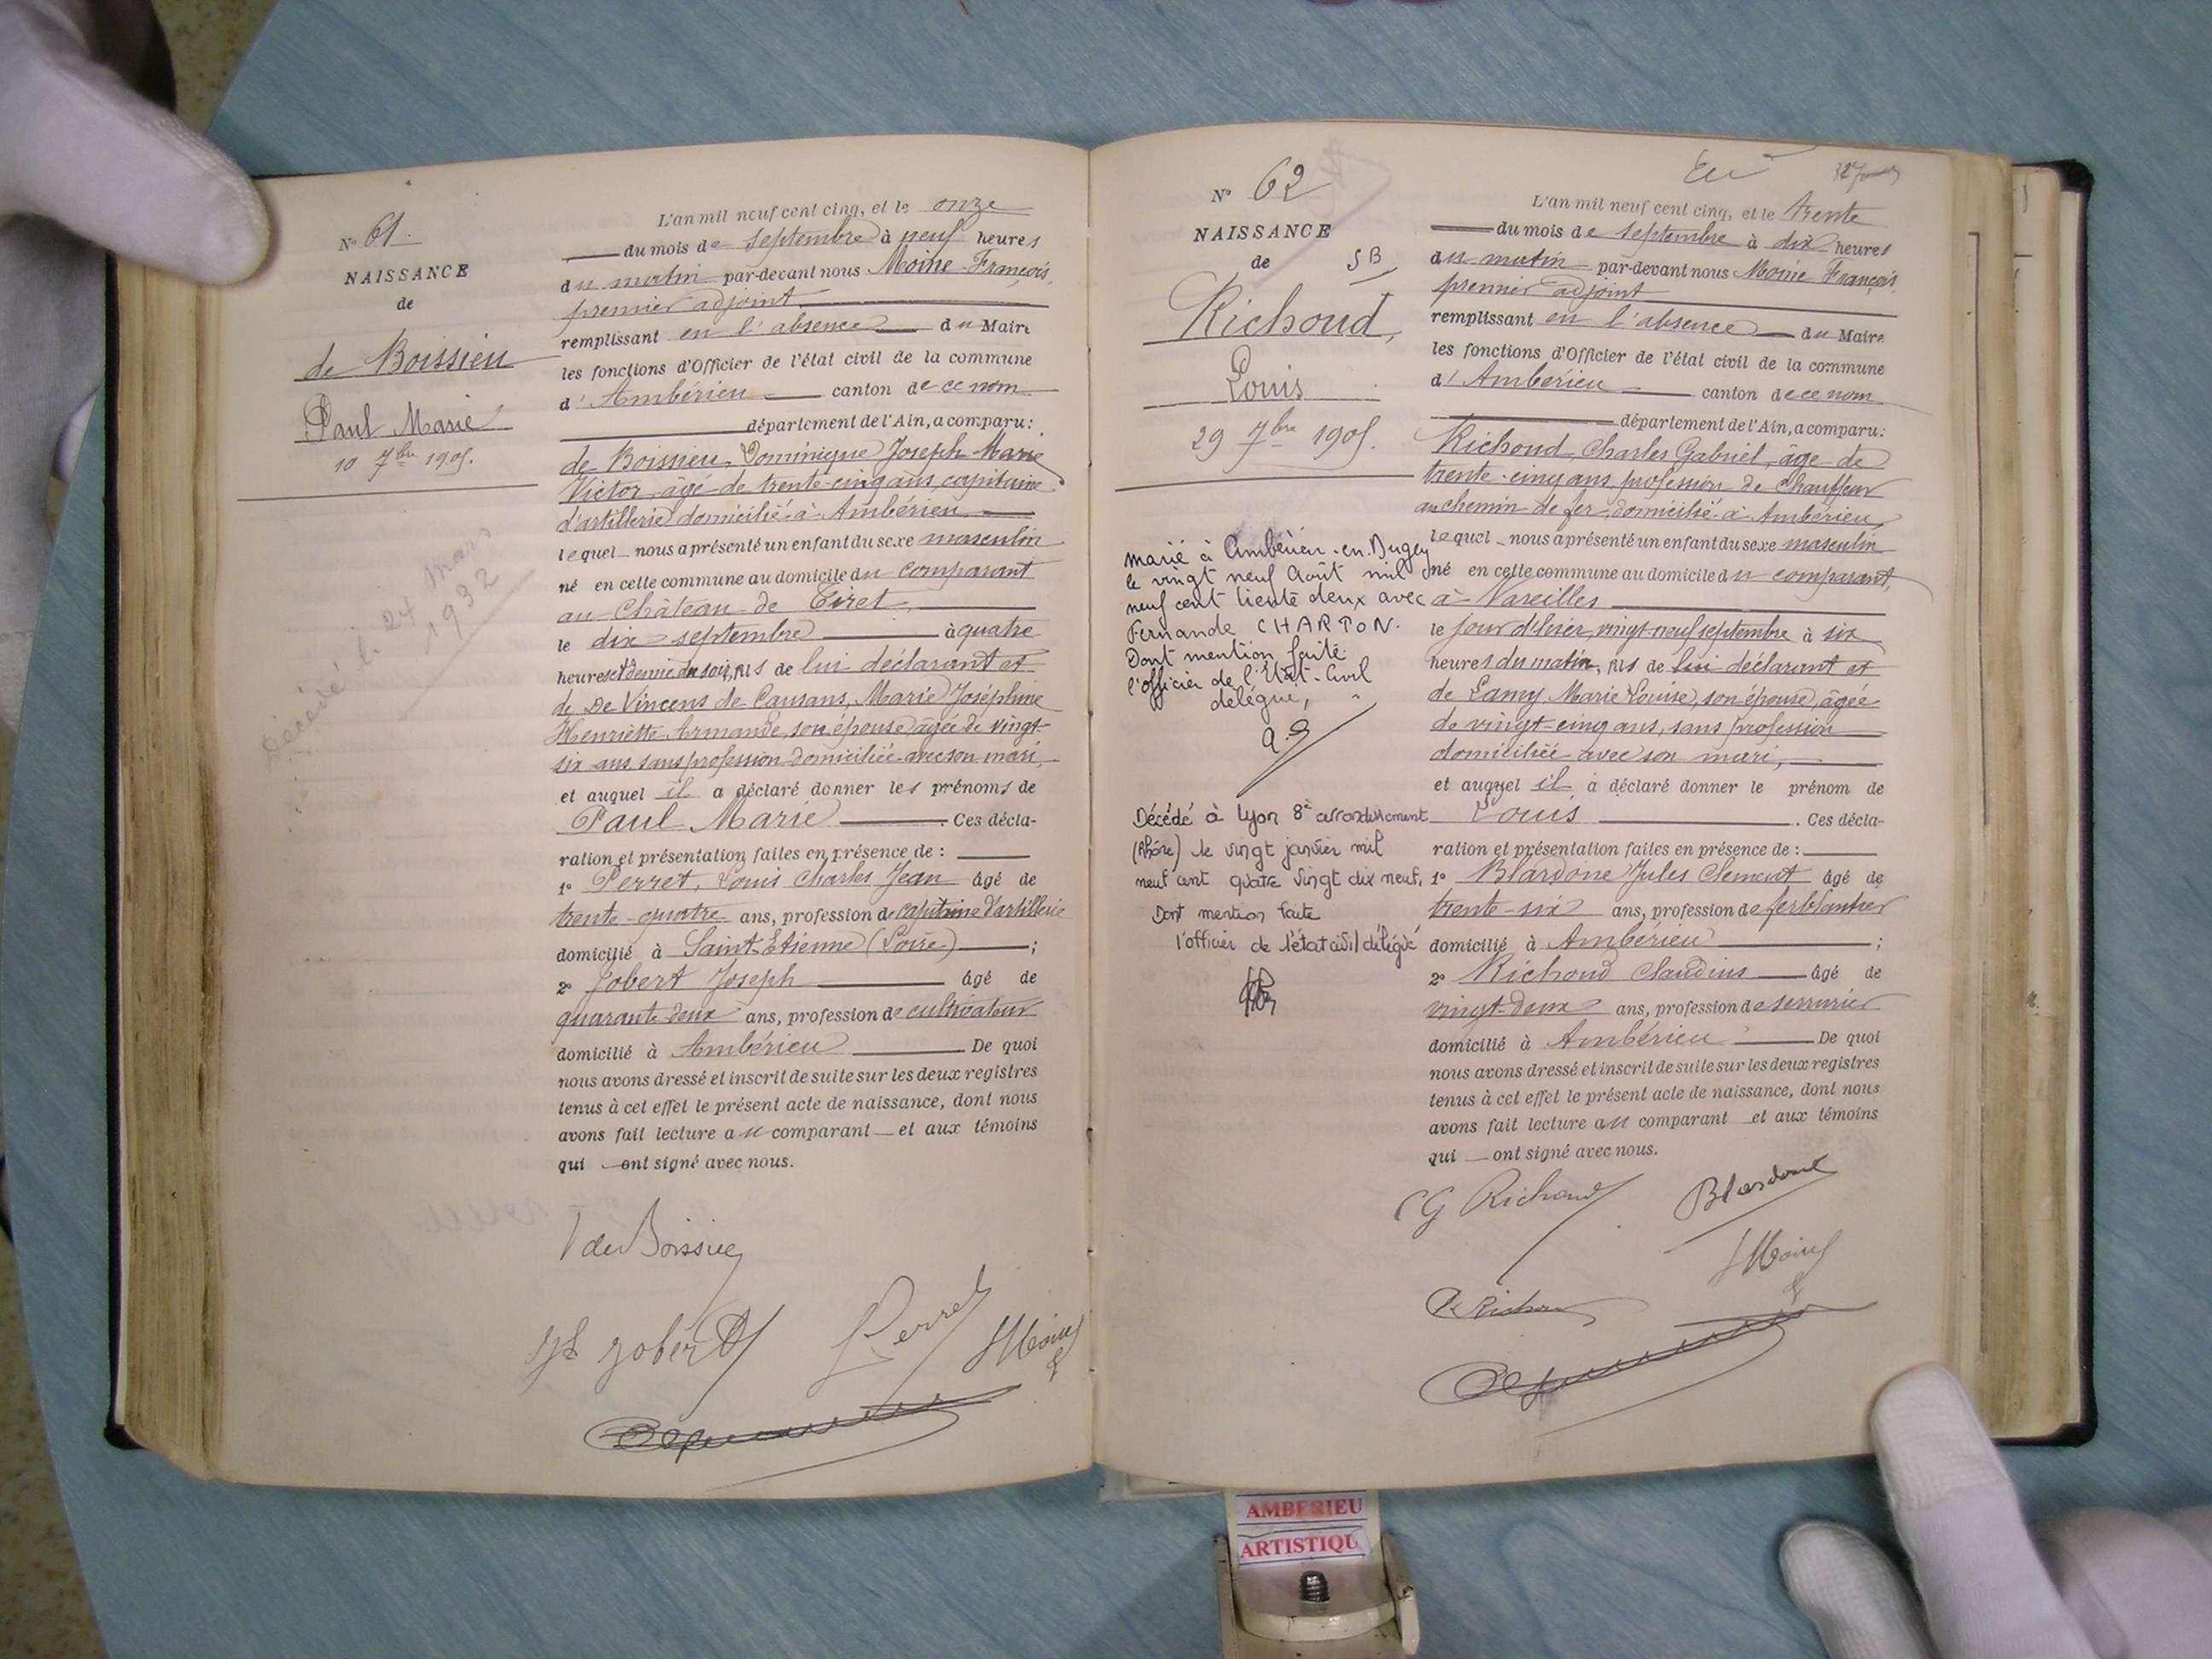 N° 61.
NAISSANCE
de
de Boissieu
Paul Marie
10 7bre 1905.
Décédé le 24 mars
1932
L'an mil neuf cent cinq, et le onze
du mois de septembre à neuf heures
du matin par-devant nous Moine François,
premier adjoint
remplissant en l'absence du Maire
les fonctions d'Officier de l'état civil de la commune
d'Ambérieu canton de ce nom
département de l'Ain, a comparu:
de Boissieu, Dominique Joseph Marie
Victor, âgé de trente-cinq ans, capitaine
d'artillerie domicilié à Ambérieu
lequel nous a présenté un enfant du sexe masculin
né en cette commune au domicile du comparant
au Château de Tiret
le dix septembre à quatre
heures et demie du soir, fils de lui déclarant et
de De Vincens de Causans, Marie Joséphine
Henriette Armande, son épouse âgée de vingt-
six ans sans profession domiciliée avec son mari,
et auquel il a déclaré donner les prénoms de
Paul Marie. Ces décla-
ration et présentation faites en présence de :
1° Perret, Louis Charles Jean âgé de
trente-quatre ans, profession de capitaine d'artillerie
domicilié à Saint-Etienne (Loire) ;
2° Jobert Joseph âgé de
quarante-deux ans, profession de cultivateur
domicilié à Ambérieu De quoi
nous avons dressé et inscrit de suite sur les deux registres
tenus à cet effet le présent acte de naissance, dont nous
avons fait lecture au comparant et aux témoins
qui ont signé avec nous.
V de Boissieu
Jh Jobert
Perret
Moine
N° 62
NAISSANCE
de
SB
Richoud,
Louis
29 7bre 1905.
marié à Ambérieu-en-Bugey
le vingt neuf Août mil
neuf cent trente deux avec
Fernande CHARTON.
Dont mention faite
l'officier de l'Etat-Civil
délégué,
Décédé à Lyon 8è arrondissement
(Rhône) le vingt janvier mil
neuf cent quatre vingt dix neuf.
Dont mention faite
l'officier de l'état civil délégué
L'an mil neuf cent cinq, et le trente
du mois de septembre à dix heures
du matin par-devant nous Moine François,
premier adjoint
remplissant en l'absence du Maire
les fonctions d'Officier de l'état civil de la commune
d'Ambérieu canton de ce nom
département de l'Ain, a comparu:
Richoud, Charles Gabriel, âgé de
trente-cinq ans, profession de chauffeur
au chemin de fer, domicilié à Ambérieu,
lequel nous a présenté un enfant du sexe masculin
né en cette commune au domicile du comparant,
à Vareilles
le jour d'hier, vingt-neuf septembre à six
heures du matin, fils de lui déclarant et
de Lamy Marie Louise, son épouse, âgée
de vingt-cinq ans, sans profession
domiciliée avec son mari,
et auquel il a déclaré donner le prénom de
Louis. Ces décla-
ration et présentation faites en présence de :
1° Blardone Jules Clément âgé de
trente-six ans, profession de ferblantier
domicilié à Ambérieu ;
2° Richoud Claudius âgé de
vingt-deux ans, profession de serrurier
domicilié à Ambérieu De quoi
nous avons dressé et inscrit de suite sur les deux registres
tenus à cet effet le présent acte de naissance, dont nous
avons fait lecture au comparant et aux témoins
qui ont signé avec nous.
CG Richoud
Blardone
Moine
C. Richoud
AMBERIEU
ARTISTIQU